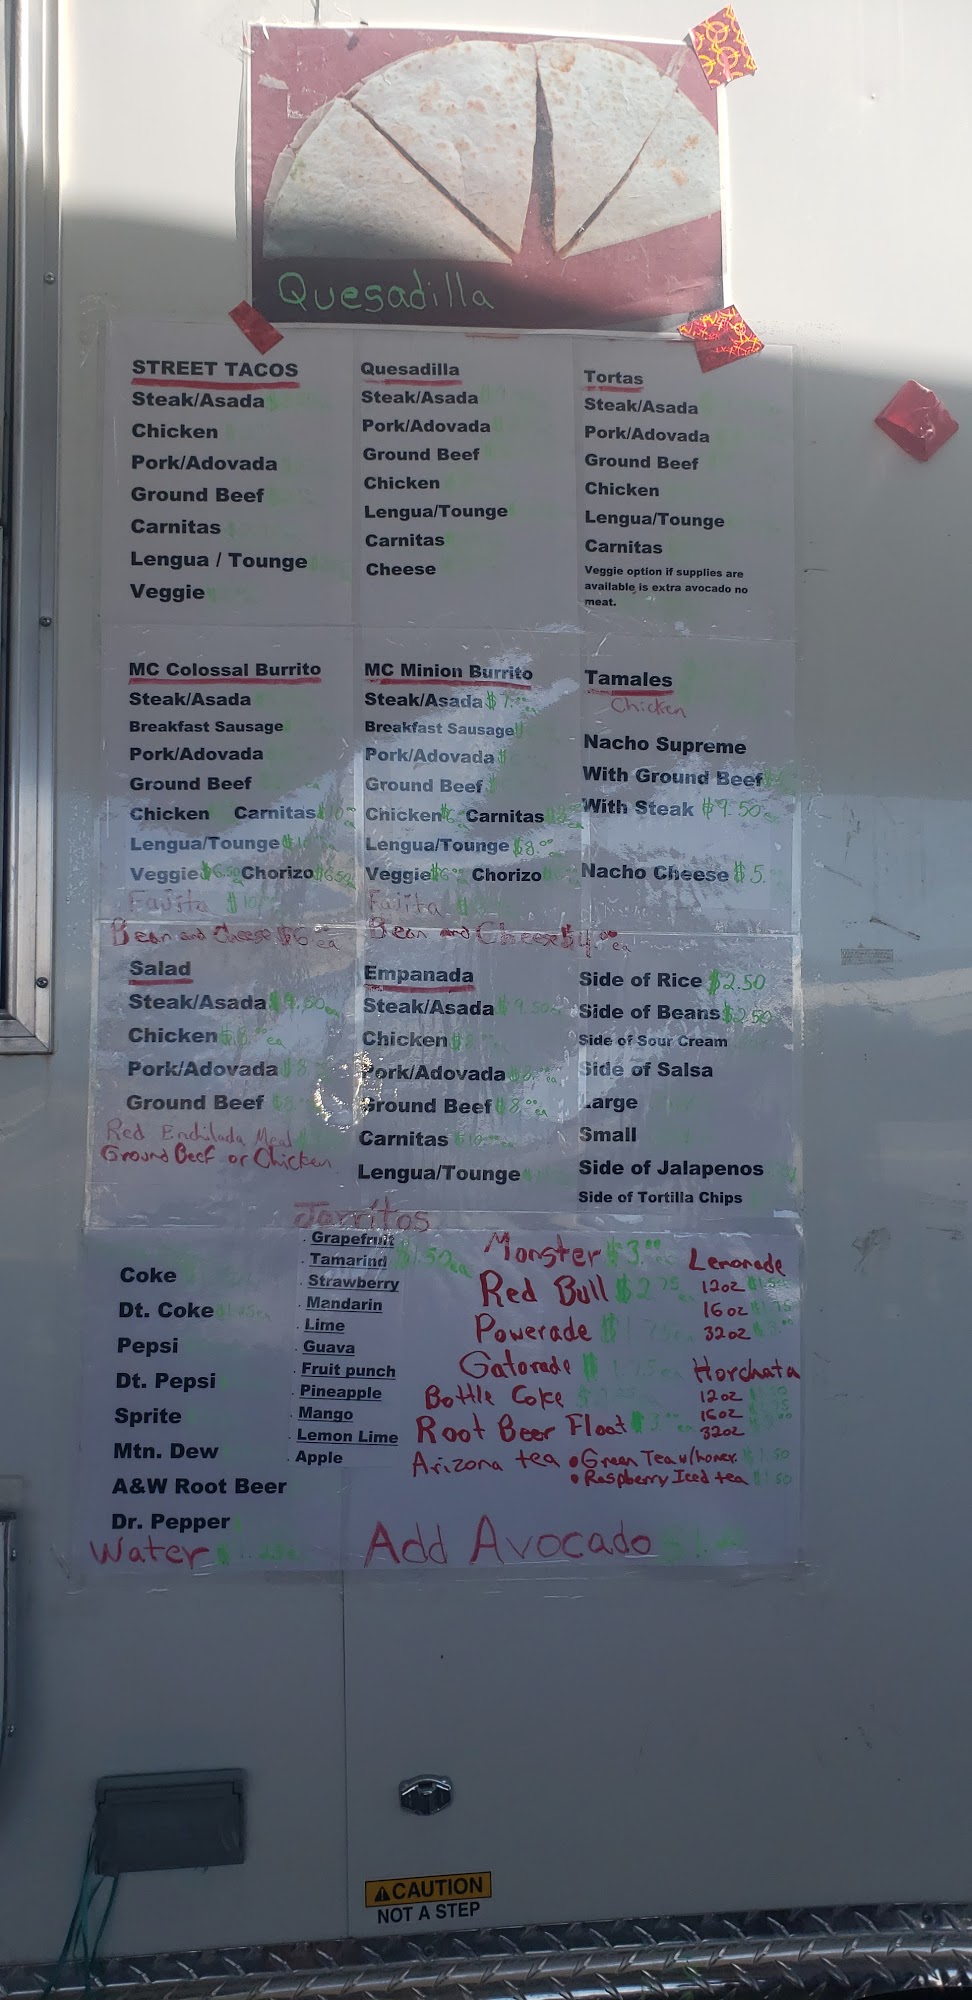 Quesadilla
STREET TACOS
Steak/Asada
Chicken
Pork/Adovada
Ground Beef
Carnitas
Lengua / Tounge
Veggie
Quesadilla
Steak/Asada
Pork/Adovada
Ground Beef
Chicken
Lengua/Tounge
Carnitas
Cheese
Tortas
Steak/Asada
Pork/Adovada
Ground Beef
Chicken
Lengua/Tounge
Carnitas
Veggie option if supplies are
available is extra avocado no
meat.
MC Colossal Burrito
Steak/Asada
Breakfast Sausage
Pork/Adovada
Ground Beef
Chicken Carnitas
Lengua/Tounge
Veggie $6.50 Chorizo $6.50
Fajita $10
Bean and Cheese $6.00 ea
MC Minion Burrito
Steak/Asada $7.00
Breakfast Sausage
Pork/Adovada
Ground Beef
Chicken Carnitas
Lengua/Tounge $8.00
Veggie Chorizo
Fajita
Bean and Cheese $4.00 ea
Tamales
Chicken
Nacho Supreme
With Ground Beef
With Steak $9.50
Nacho Cheese $5.
Salad
Steak/Asada $9.50 ea
Chicken $8.00 ea
Pork/Adovada $8
Ground Beef $8
Red Enchilada Meal
Ground Beef or Chicken
Empanada
Steak/Asada $9.50
Chicken $8
Pork/Adovada
Ground Beef $8.00 ea
Carnitas
Lengua/Tounge
Side of Rice $2.50
Side of Beans $2.50
Side of Sour Cream
Side of Salsa
Large
Small
Side of Jalapenos
Side of Tortilla Chips
Coke
Dt. Coke
Pepsi
Dt. Pepsi
Sprite
Mtn. Dew
A&W Root Beer
Dr. Pepper
Water
Jarritos
Grapefruit
Tamarind $1.50 ea
Strawberry
Mandarin
Lime
Guava
Fruit punch
Pineapple
Mango
Lemon Lime
Apple
Monster $3.00
Red Bull $2.75
Powerade
Gatorade
Bottle Coke
Root Beer Float
Arizona tea • Green Tea w/honey $1.50
• Raspberry Iced tea $1.50
Lemonade
12oz
16oz
32oz
Horchata
12oz
16oz
32oz
Add Avocado
CAUTION
NOT A STEP